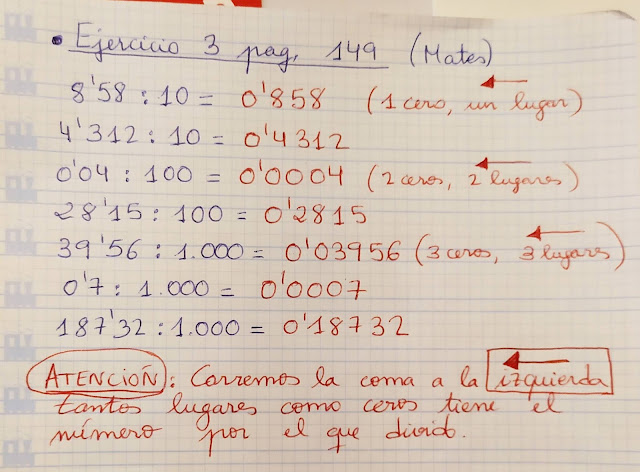 • Ejercicio 3 pag. 149 (Mates)
8'58 : 10 = 0'858 (1 cero, un lugar)
4'312 : 10 = 0'4312
0'04 : 100 = 0'0004 (2 ceros, 2 lugares)
28'15 : 100 = 0'2815
39'56 : 1.000 = 0'03956 (3 ceros, 3 lugares)
0'7 : 1.000 = 0'0007
187'32 : 1.000 = 0'18732
ATENCIÓN: Corremos la coma a la izquierda
tantos lugares como ceros tiene el
número por el que divido.